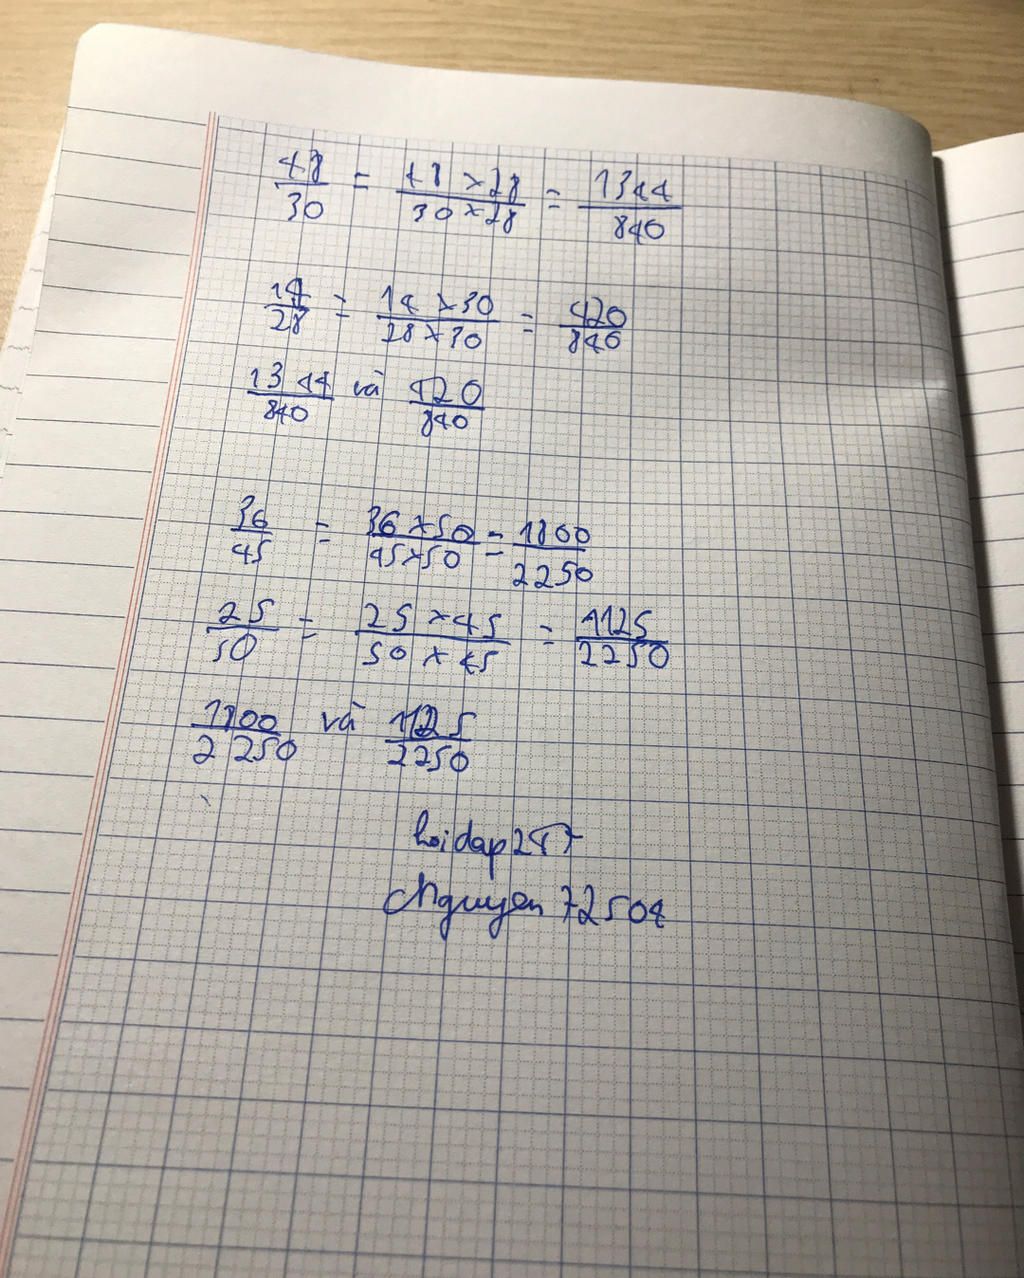 48/30 = 48 × 28/30 × 28 = 1344/840
14/28 = 14 × 30/28 × 30 = 420/840
1344/840 và 420/840
36/45 = 36 × 50/45 × 50 = 1800/2250
25/50 = 25 × 45/50 × 45 = 1125/2250
1800/2250 và 1125/2250
hoidap247
Nguyen 72504